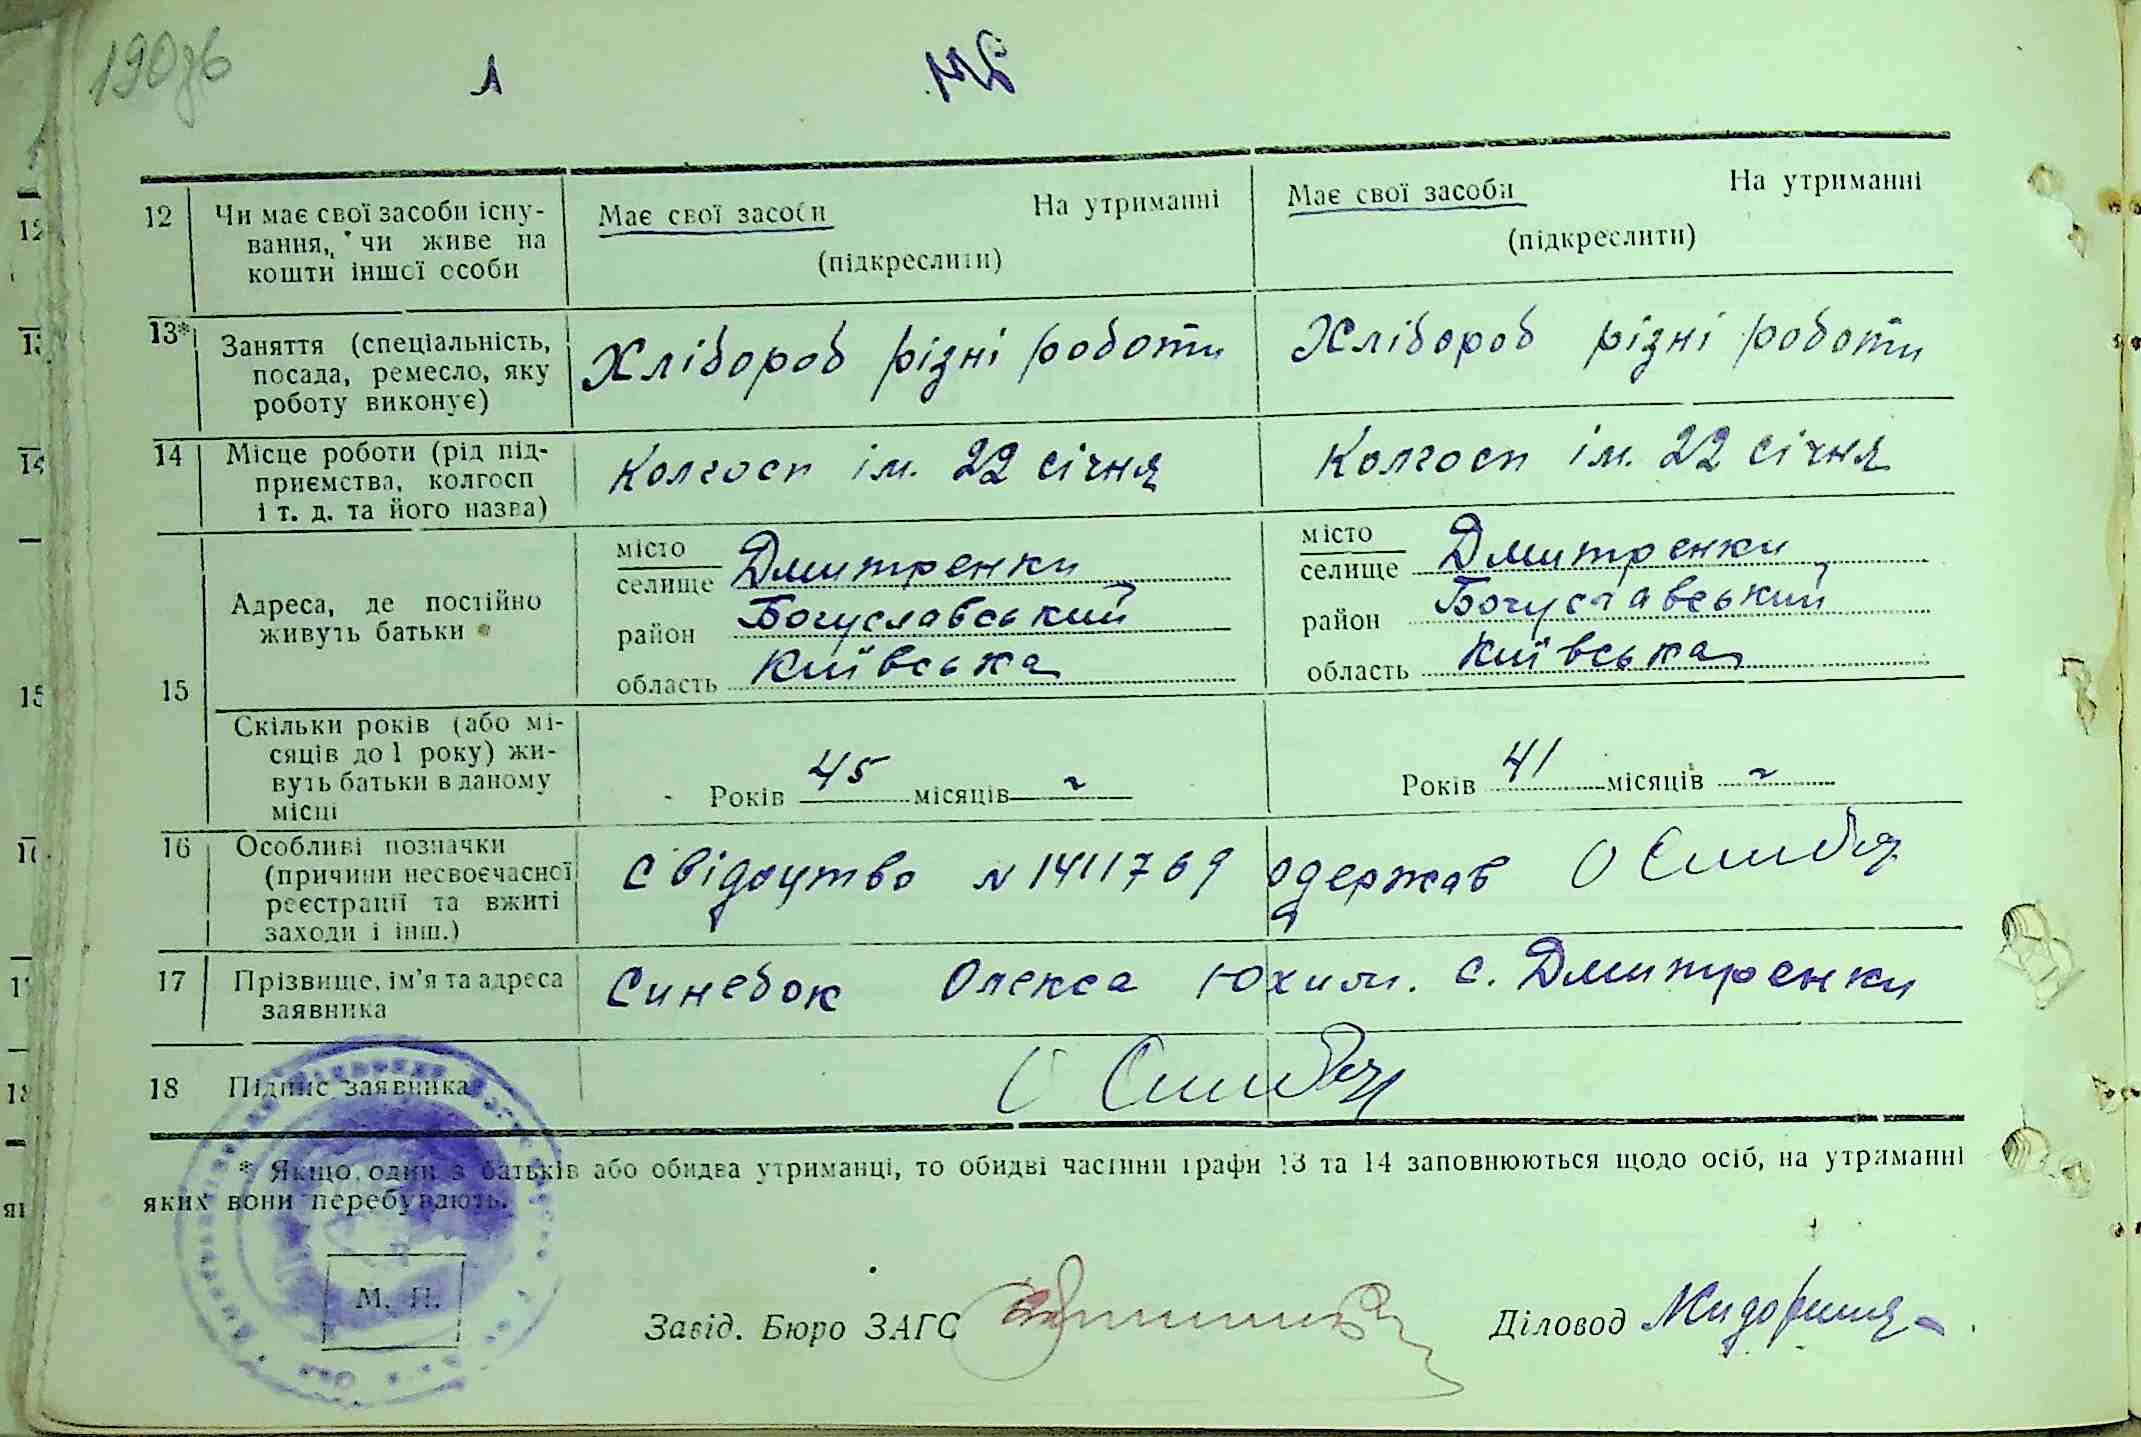 190зв
12 Чи має свої засоби існу-
вання, чи живе на
кошти іншої особи
Має свої засоби На утриманні
(підкреслити)
Має свої засоби На утриманні
(підкреслити)
13* Заняття (спеціальність,
посада, ремесло, яку
роботу виконує)
Хлібороб різні роботи
Хлібороб різні роботи
14 Місце роботи (рід під-
приємства, колгосп
і т. д. та його назва)
Колгосп ім. 22 січня
Колгосп ім. 22 січня
15 Адреса, де постійно
живуть батьки
місто
селище Дмитренки
район Богуславський
область Київська
місто
селище Дмитренки
район Богуславський
область Київська
Скільки років (або мі-
сяців до 1 року) жи-
вуть батьки в даному
місці
Років 45 місяців ~
Років 41 місяців ~
16 Особливі позначки
(причини несвоєчасної
реєстрації та вжиті
заходи і інш.)
Свідоцтво N 1411769 одержав
17 Прізвище, ім'я та адреса
заявника
Синебок Олекса Юхим. с. Дмитренки
18 Підпис заявника
* Якщо один з батьків або обидва утриманці, то обидві частини графи 13 та 14 заповнюються щодо осіб, на утриманні
яких вони перебувають.
М. П.
Завід. Бюро ЗАГС
Діловод